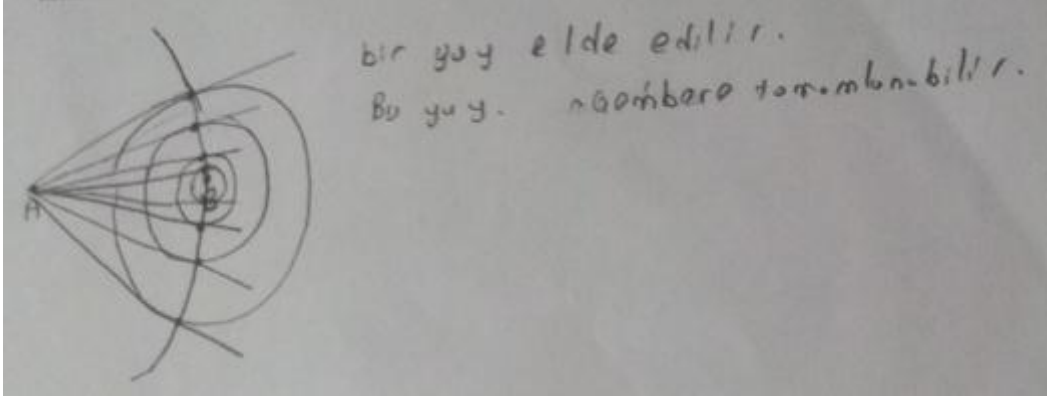 bir yay elde edilir.
Bu yay. Çembere tamamlanabilir.
A
B